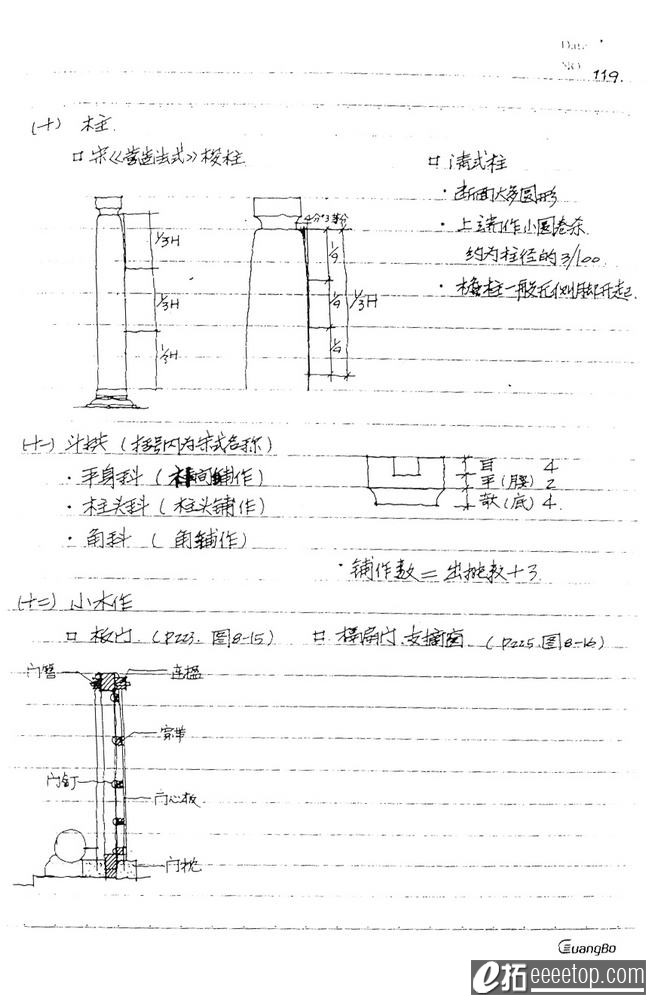 Date
NO 119.
(十) 柱.
□ 宋《营造法式》梭柱
□ 清式柱
· 断面大多圆形
· 上端作小圆卷杀
约为柱径的3/100
· 檐柱一般无侧脚升起.
⅓H
⅓H
⅓H
4分 3等分
1/9
1/9
1/9
⅓H
(十一) 斗栱 (括号内为宋式名称)
· 平身科 (补间铺作)
· 柱头科 (柱头铺作)
· 角科 (角铺作)
耳 4
平(腰) 2
欹(底) 4.
· 铺作数 = 出挑数 + 3
(十二) 小木作
□ 板门. (P223. 图8-15)
□ 槅扇门、支摘窗 (P225.图8-16)
门簪
连楹
穿带
门钉
门心板
门枕
GuangBo
e拓 eeeetop.com